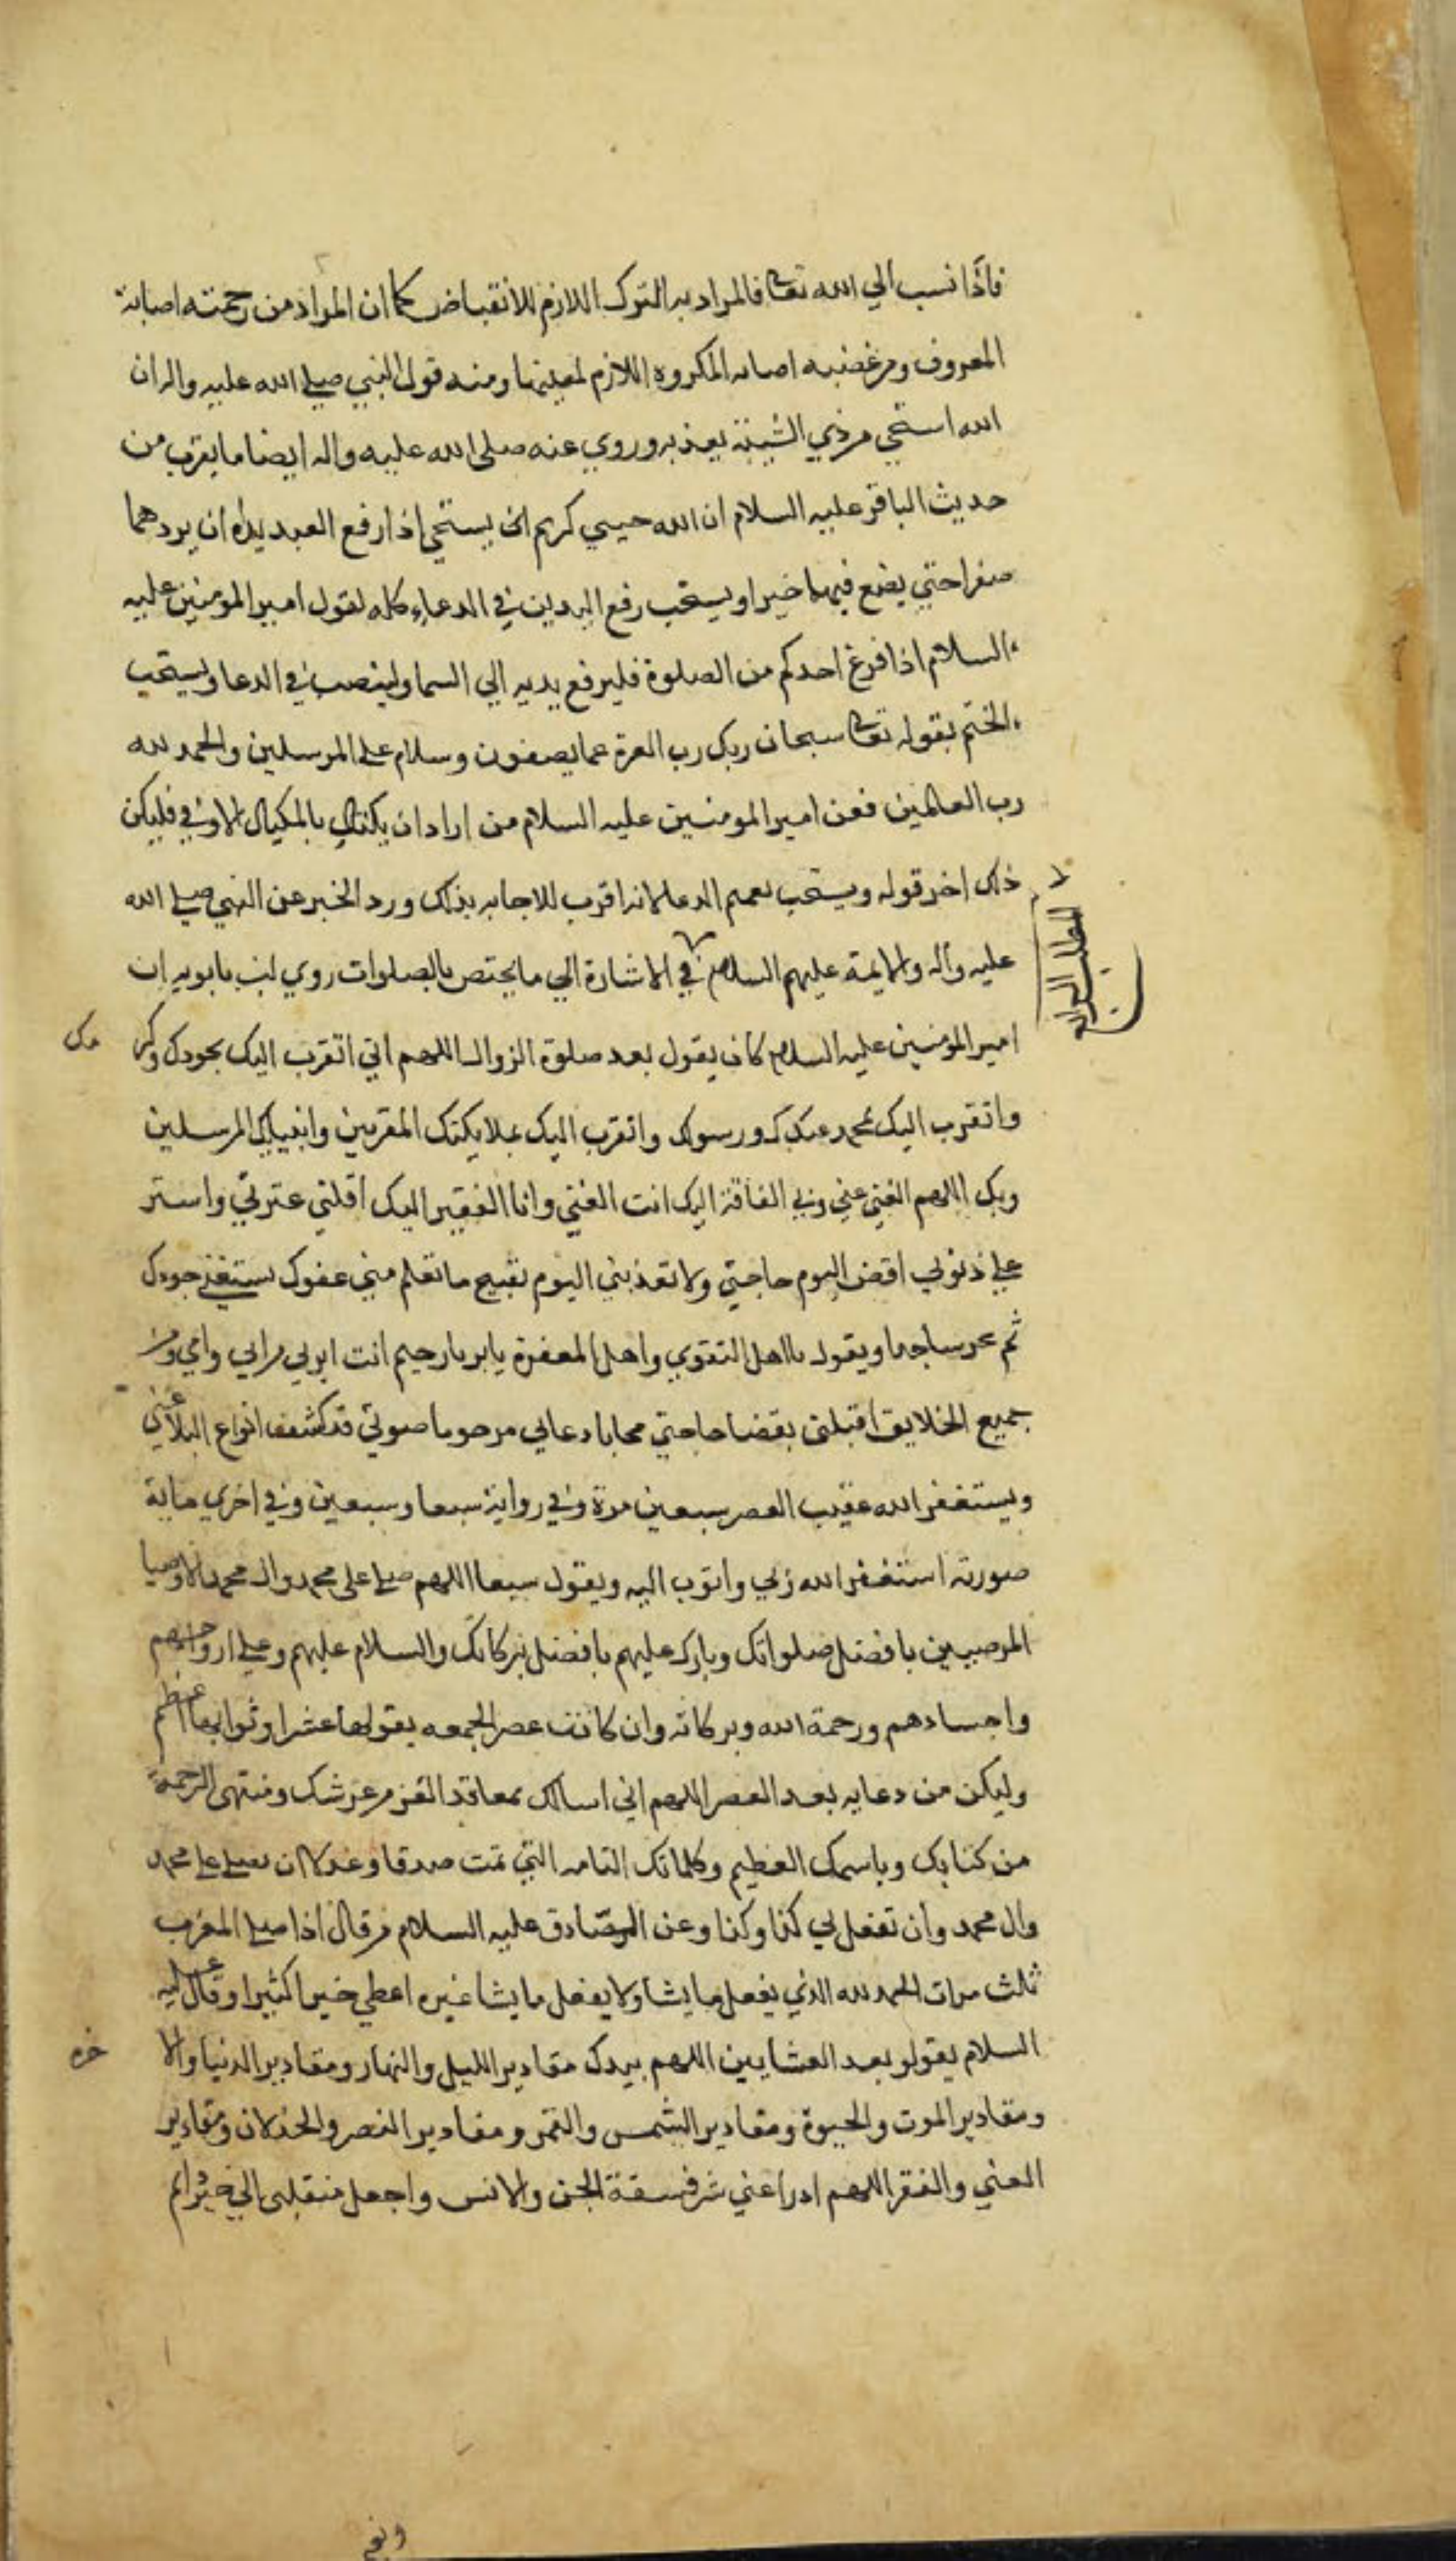 فاذا نسب الي الله تعالى فالمراد به الترك اللازم للانقباض كما ان المراد من رحمته اصابة
المعروف ومن غضبه اصابه المكروه اللازم لمعنيهما ومنه قول النبي صلى الله عليه واله ان
الله استحي من ذي الشيبة يعذبه وروي عنه صلى الله عليه واله ايضا ما يقرب من
حديث الباقر عليه السلام ان الله حيي كريم يستحي اذا رفع العبد يداه ان يردهما
صفرا حتي يضع فيهما خيرا ويستحب رفع اليدين في الدعاء كله لقول امير المومنين عليه
السلام اذا فرغ احدكم من الصلوة فليرفع يديه الي السما ولينصب في الدعا ويستحب
الختم بقوله تعالى سبحان ربك رب العزة عما يصفون وسلام على المرسلين والحمد لله
رب العالمين فعن امير المومنين عليه السلام من اراد ان يكتال بالمكيال الاوفي فليكن
ذلك اخر قوله ويستحب تعميم الدعا لانه اقرب للاجابه بذلك ورد الخبر عن النبي صلى الله
عليه وآله والايمة عليهم السلام في الاشارة الي ما يختص بالصلوات روي ابن بابويه ان
امير المومنين عليه السلام كان يقول بعد صلوة الزوال اللهم اني اتقرب اليك بجودك وكر مك
واتقرب اليك بمحمد عبدك ورسولك واتقرب اليك بملايكتك المقربين وانبيايك المرسلين
وبك اللهم الغني عني وبي الفاقة اليك انت الغني وانا الفقير اليك اقلتي عثرتي واستر
علي ذنوبي اقض اليوم حاجتي ولا تعذبني اليوم بقبيح ما تعلم مني عفوك يستغني جودك
ثم يخر ساجدا ويقول يا اهل التقوي واهل المغفرة يابر يا رحيم انت ابر بي من ابي وامي ومن
جميع الخلايق اقبلني بقضا حاجتي مجابا دعايي مرحوما صوتي قد كشفت انواع البلا عني
ويستغفر الله عقيب العصر سبعين مرة وفي رواية سبعا وسبعين وفي اخري ماية
صورته استغفر الله ربي واتوب اليه ويقول سبعا اللهم صل على محمد وال محمد الاوصيا
المرضيين بافضل صلواتك وبارك عليهم بافضل بركاتك والسلام عليهم وعلي ارواحهم
واجسادهم ورحمة الله وبركاته وان كانت عصر الجمعه يقولها عشرا وثوابها عظيم
وليكن من دعايه بعد العصر اللهم اني اسالك بمعاقد العز من عرشك ومنتهى الرحمة
من كتابك وباسمك العظيم وكلماتك التامه التي تمت صدقا وعدلا ان تصلي على محمد
وال محمد وان تفعل بي كذا وكذا وعن الصادق عليه السلام من قال اذا صلى المغرب
ثلث مرات الحمد لله الذي يفعل ما يشا ولا يفعل ما يشا غيره اعطي خيرا كثيرا وقال عليه
السلام يقول بعد العشايين اللهم بيدك مقادير الليل والنهار ومقادير الدنيا والا خره
ومقادير الموت والحيوة ومقادير الشمس والقمر ومقادير النصر والخذلان ومقادير
الغني والفقر اللهم ادرا عني شر فسقة الجن والانس واجعل منقلبي الي خير دايم
المطلب الرابع